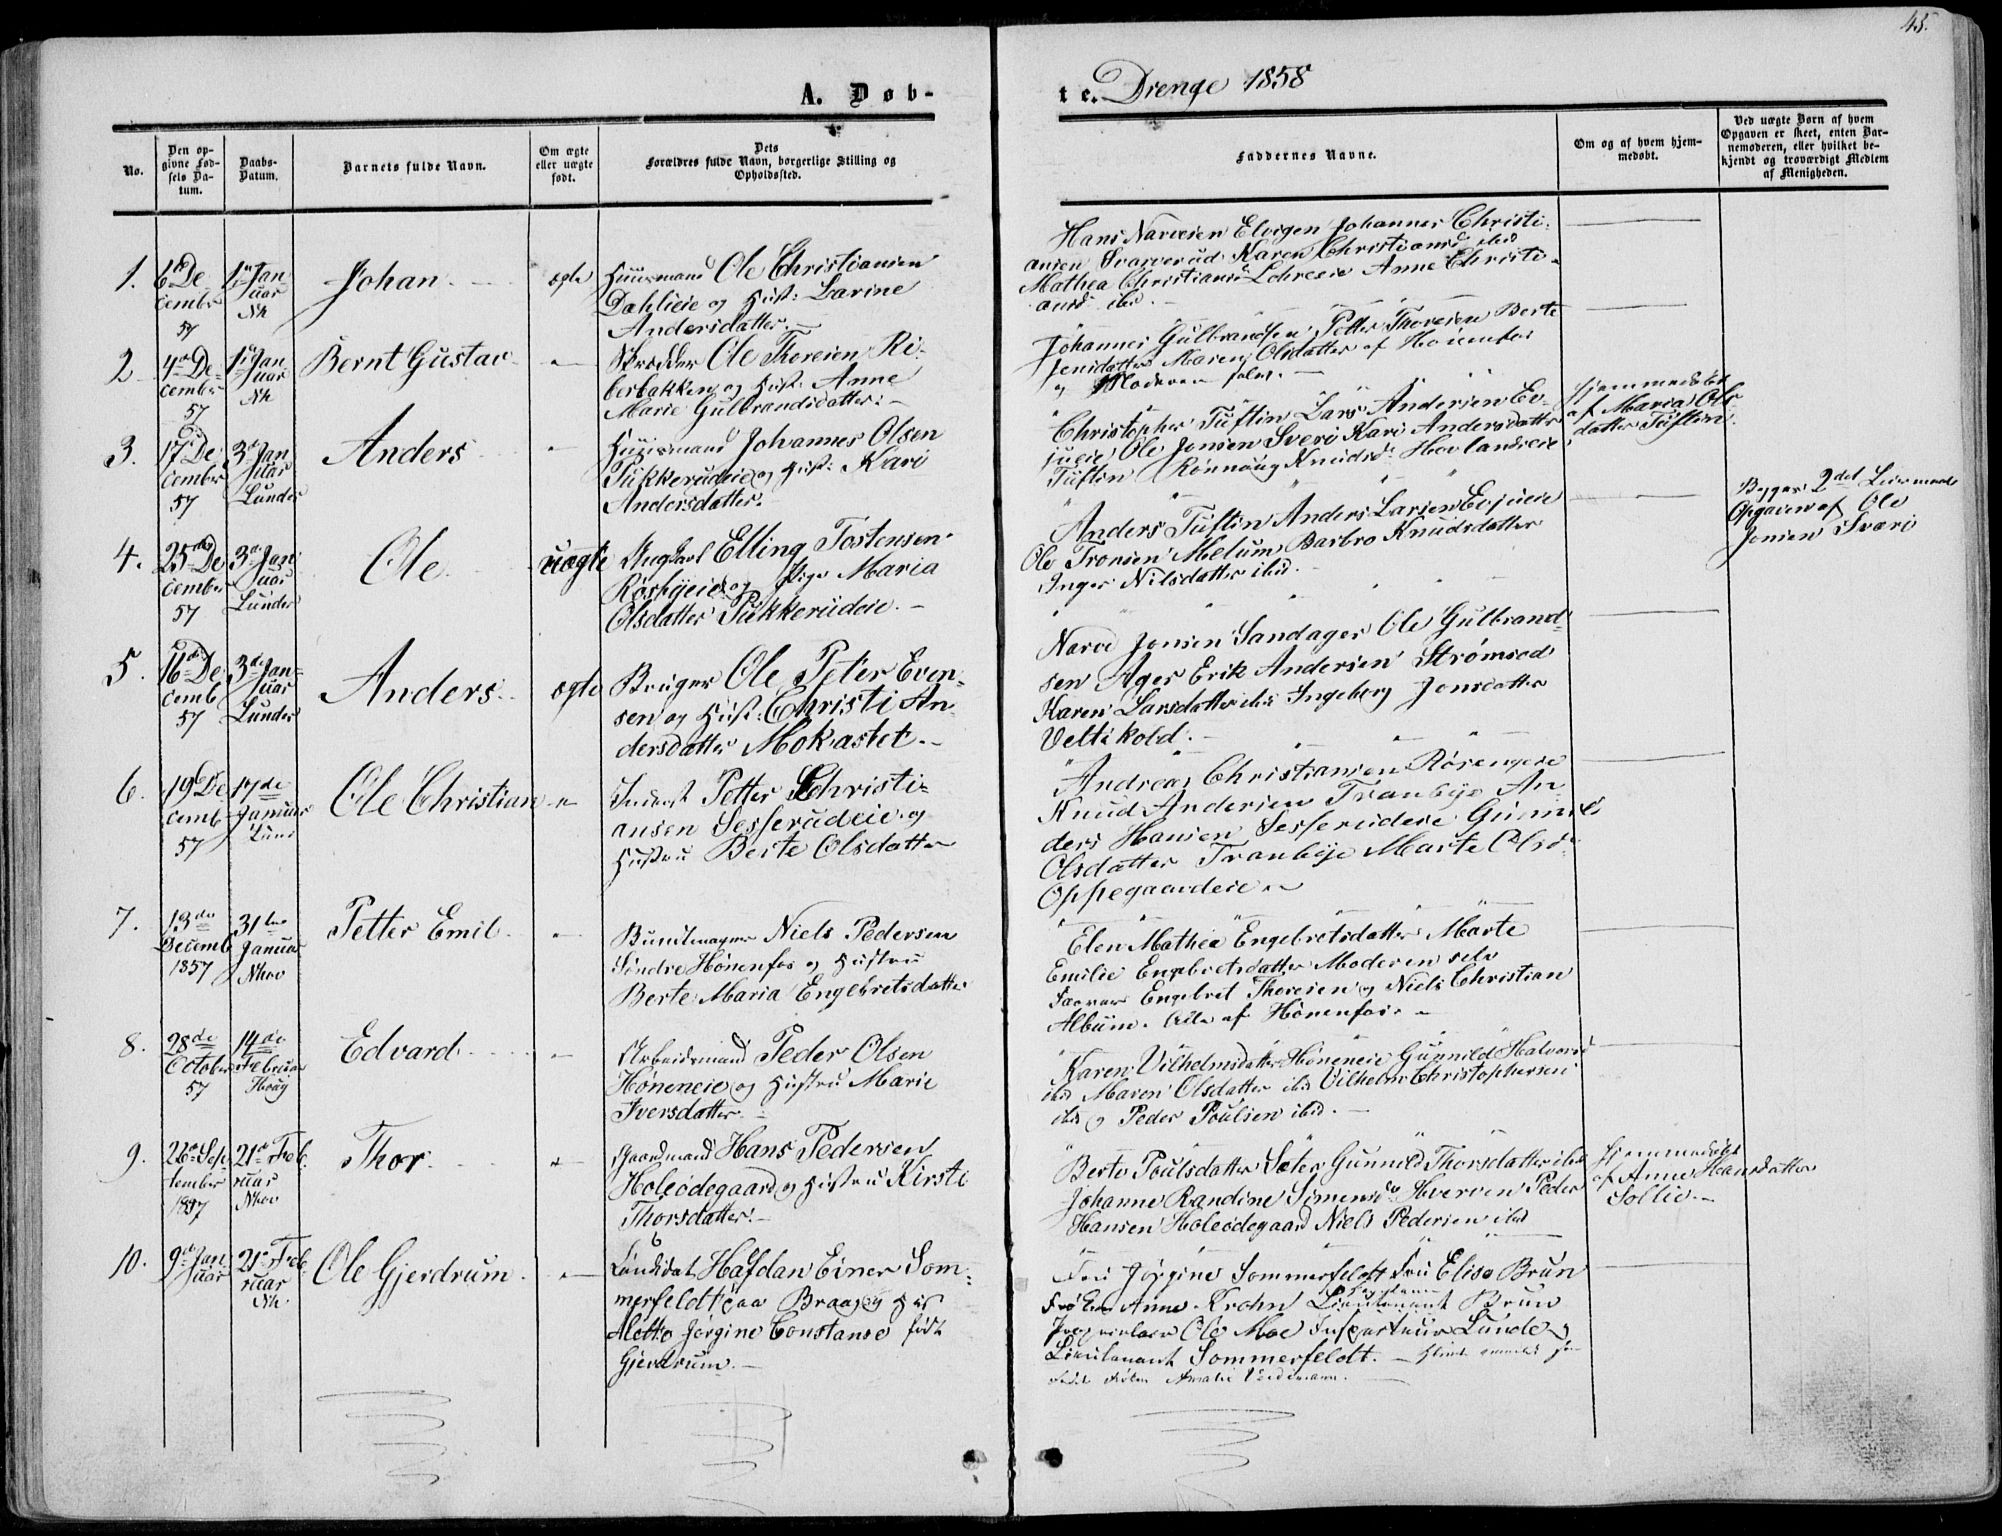 45.
A. Døb-
te. Drenge 1858
No.
Den op-
givne Fød-
sels Da-
tum.
Daabs-
Datum.
Barnets fulde Navn.
Om ægte
eller uægte
født.
Dets
Forældres fulde Navn, borgerlige Stilling og
Opholdssted.
Faddernes Navne.
Om og af hvem hjem-
medøbt.
Ved uægte Børn af hvem
Opgaven er skeet, enten Bar-
nemoderen, eller hvilket be-
kjendt og troværdigt Medlem
af Menigheden.
1.
6te De-
cember
57
1ste Jan-
uar
Nh
Johan
ægte
Huusmand Ole Christiansen
Dahleie og Hust: Larine
Andersdatter.
Hans Narvesen Elvigen Johannes Christi-
ansen Svarverud Karen Christiansd ibid
Mathea Christiansd Lehreeie Anne Christi-
ansd ibid.
2
4de De-
cember
57
1ste Jan-
uar
Nh
Bernt Gustav
"
Skrædder Ole Thoresen Ri-
berbakken og Hust: Anne
Marie Gulbrandsdatter.
Johannes Gulbrandsen, Petter Thoresen Berte
Jensdatter Maren Olsdatter af Hønenfos
og Moderen selv.
3.
17de De-
cember
57
3de Jan
uar
Lunder
Anders
"
Huusmand Johannes Olsen
Tukkerudeie og Hust: Kari
Andersdatter.
Christopher Tuftin Lars Andersen Ev-
jueie Ole Jonsen Sveri Kari Andersdatter
Tuftin Rønnaug Knudsd: Hovlandseie
Hjemmedøbt
af Maria Ols-
datter Tuftin
4.
25de De
cember
57
3de Jan
uar
Lunder
Ole
uægte
Ungkarl Elling Tostensen
Røsbyeie og Pige Maria
Olsdatter Tukkerudeie.
Anders Tuftin Anders Larsen Evjueie
Ole Tronsen Melum Barbro Knudsdatter
Inger Nilsdatter ibid.
Begges 2det Leiermaal
Opgaven af Ole
Jonsen Sværi
5.
16de De
cemb
57
3de Jan-
uar
Lunder
Anders
ægte
Bruger Ole Peter Even-
sen og Hust: Christi An-
dersdatter Mokastet.
Narve Jonsen Sandager Ole Gulbrand-
sen Ager Erik Andersen Strømsod
Karen Larsdatter ibid Ingeborg Jonsdatter
Veltikold.
6.
19 De
cemb
57
17de
Januar
Lund
Ole Christian
"
Inderst Petter Christi-
ansen Sesserudeie og
Hustru Berte Olsdatter
Andreas Christiansen Røsengeie
Knud Andersen Tranbye An-
ders Hansen Sesserudeie Gunnild
Olsdatter Tranbye Marte Olsd
Oppegaardeie
7.
13de
Decemb
1857
31te
Januar
Nhov
Petter Emil
"
Buntmager Niels Pedersen
Søndre Hønenfos og Hustru
Berte Maria Engebretsdatter
Elen Mathea Engebretsdatter Marte
Emilie Engebretsdatter Moderen selv
Farver Engebret Thoresen og Niels Christian
Album. Alle af Hønenfos.
8.
28de
October
57
14de
Februar
Houg
Edvard
"
Arbeidsmand Peder Olsen
Høneneie og Hustru Marie
Iversdatter
Karen Vilhelmsdatter Høneneie Gunnild Halvorsd
ibid Maren Olsdatter ibid Vilhelm Christophersen
ibid og Peder Poulsen ibid.
9.
22de Sep-
tember
1857
21de Feb
ruar
Nhov
Thor
"
Gaardmand Hans Pedersen
Holeødegaard og Hustru Kirsti
Thorsdatter.
Berte Poulsdatter Sæter Gunnild Thorsdatter ibid
Johanne Randine Simensd Hverven Peder
Hansen Holeødegaard Niels Pedersen ibid
Hjemmedøbt
af Anne Hansdatter
Sollie.
10.
9de Jan
uar
21de Feb
ruar
Nh.
Ole Gjerdrum
"
Candidat Hafdan Einer Som-
merfeldt paa Braag og Hus
Aletta Jørgine Constanse født
Gjerdrum.
Fru Jørgine Sommerfeldt Fru Elise Brun
Frøken Anne Krohn Lieutenant Brun
Proprietær Ole Moe Inspecteur Lunde og
Lieutenant Sommerfeldt.
Frøken Amalie